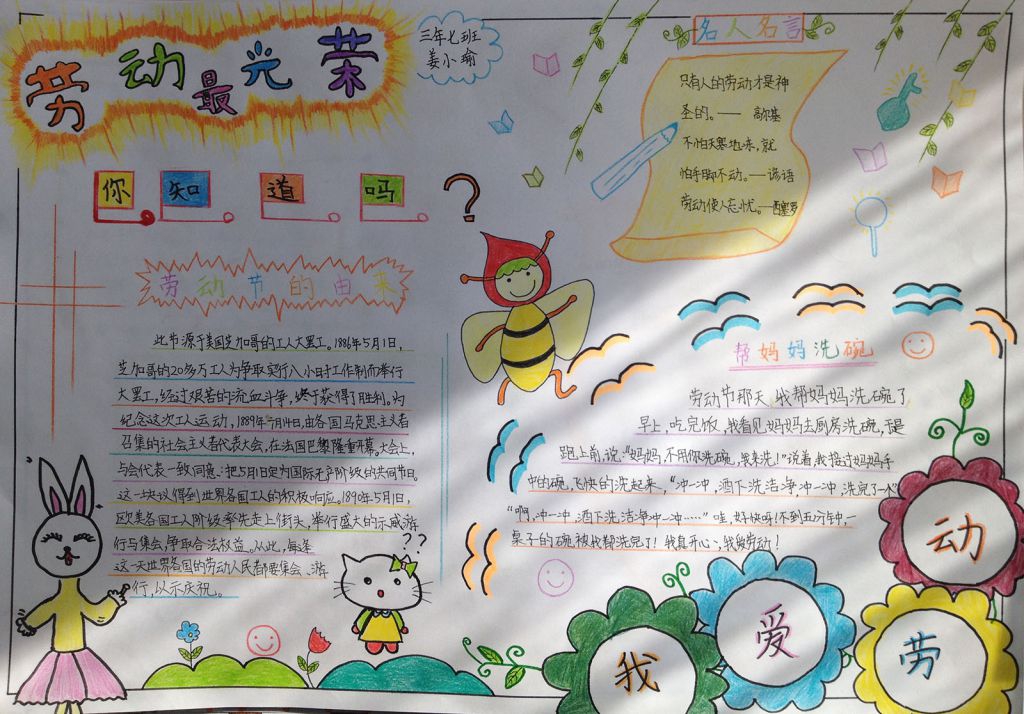 劳动最光荣
三年七班
姜小瑜
名人名言
只有人的劳动才是神
圣的。—— 高尔基
不怕天寒地冻，就
怕手脚不动。—谚语
劳动使人忘忧。—西塞罗
你知道吗？
劳动节的由来
此节源于美国芝加哥的工人大罢工。1886年5月1日，
芝加哥的20多万工人为争取实行八小时工作制而举行
大罢工，经过艰苦的流血斗争，终于获得了胜利。为
纪念这次工人运动，1889年7月14日，由各国马克思主义者
召集的社会主义者代表大会，在法国巴黎隆重开幕。大会上，
与会代表一致同意：把5月1日定为国际无产阶级的共同节日。
这一决议得到世界各国工人的积极响应。1890年5月1日，
欧美各国工人阶级率先走上街头，举行盛大的示威游
行与集会，争取合法权益。从此，每逢
这一天世界各国的劳动人民都要集会、游
行，以示庆祝。
??
帮妈妈洗碗
劳动节那天，我帮妈妈洗碗了
早上，吃完饭，我看见妈妈去厨房洗碗，于是
跑上前，说：“妈妈，不用你洗碗，我来洗！”说着，我接过妈妈手
中的碗，飞快的洗起来，“冲一冲，洒下洗洁净，冲一冲，洗完了一个”
“啊，冲一冲，洒下洗洁净冲一冲……”哇，好快呀！不到五分钟，一
桌子的碗被我帮洗完了！我真开心，我爱劳动！
我爱劳动